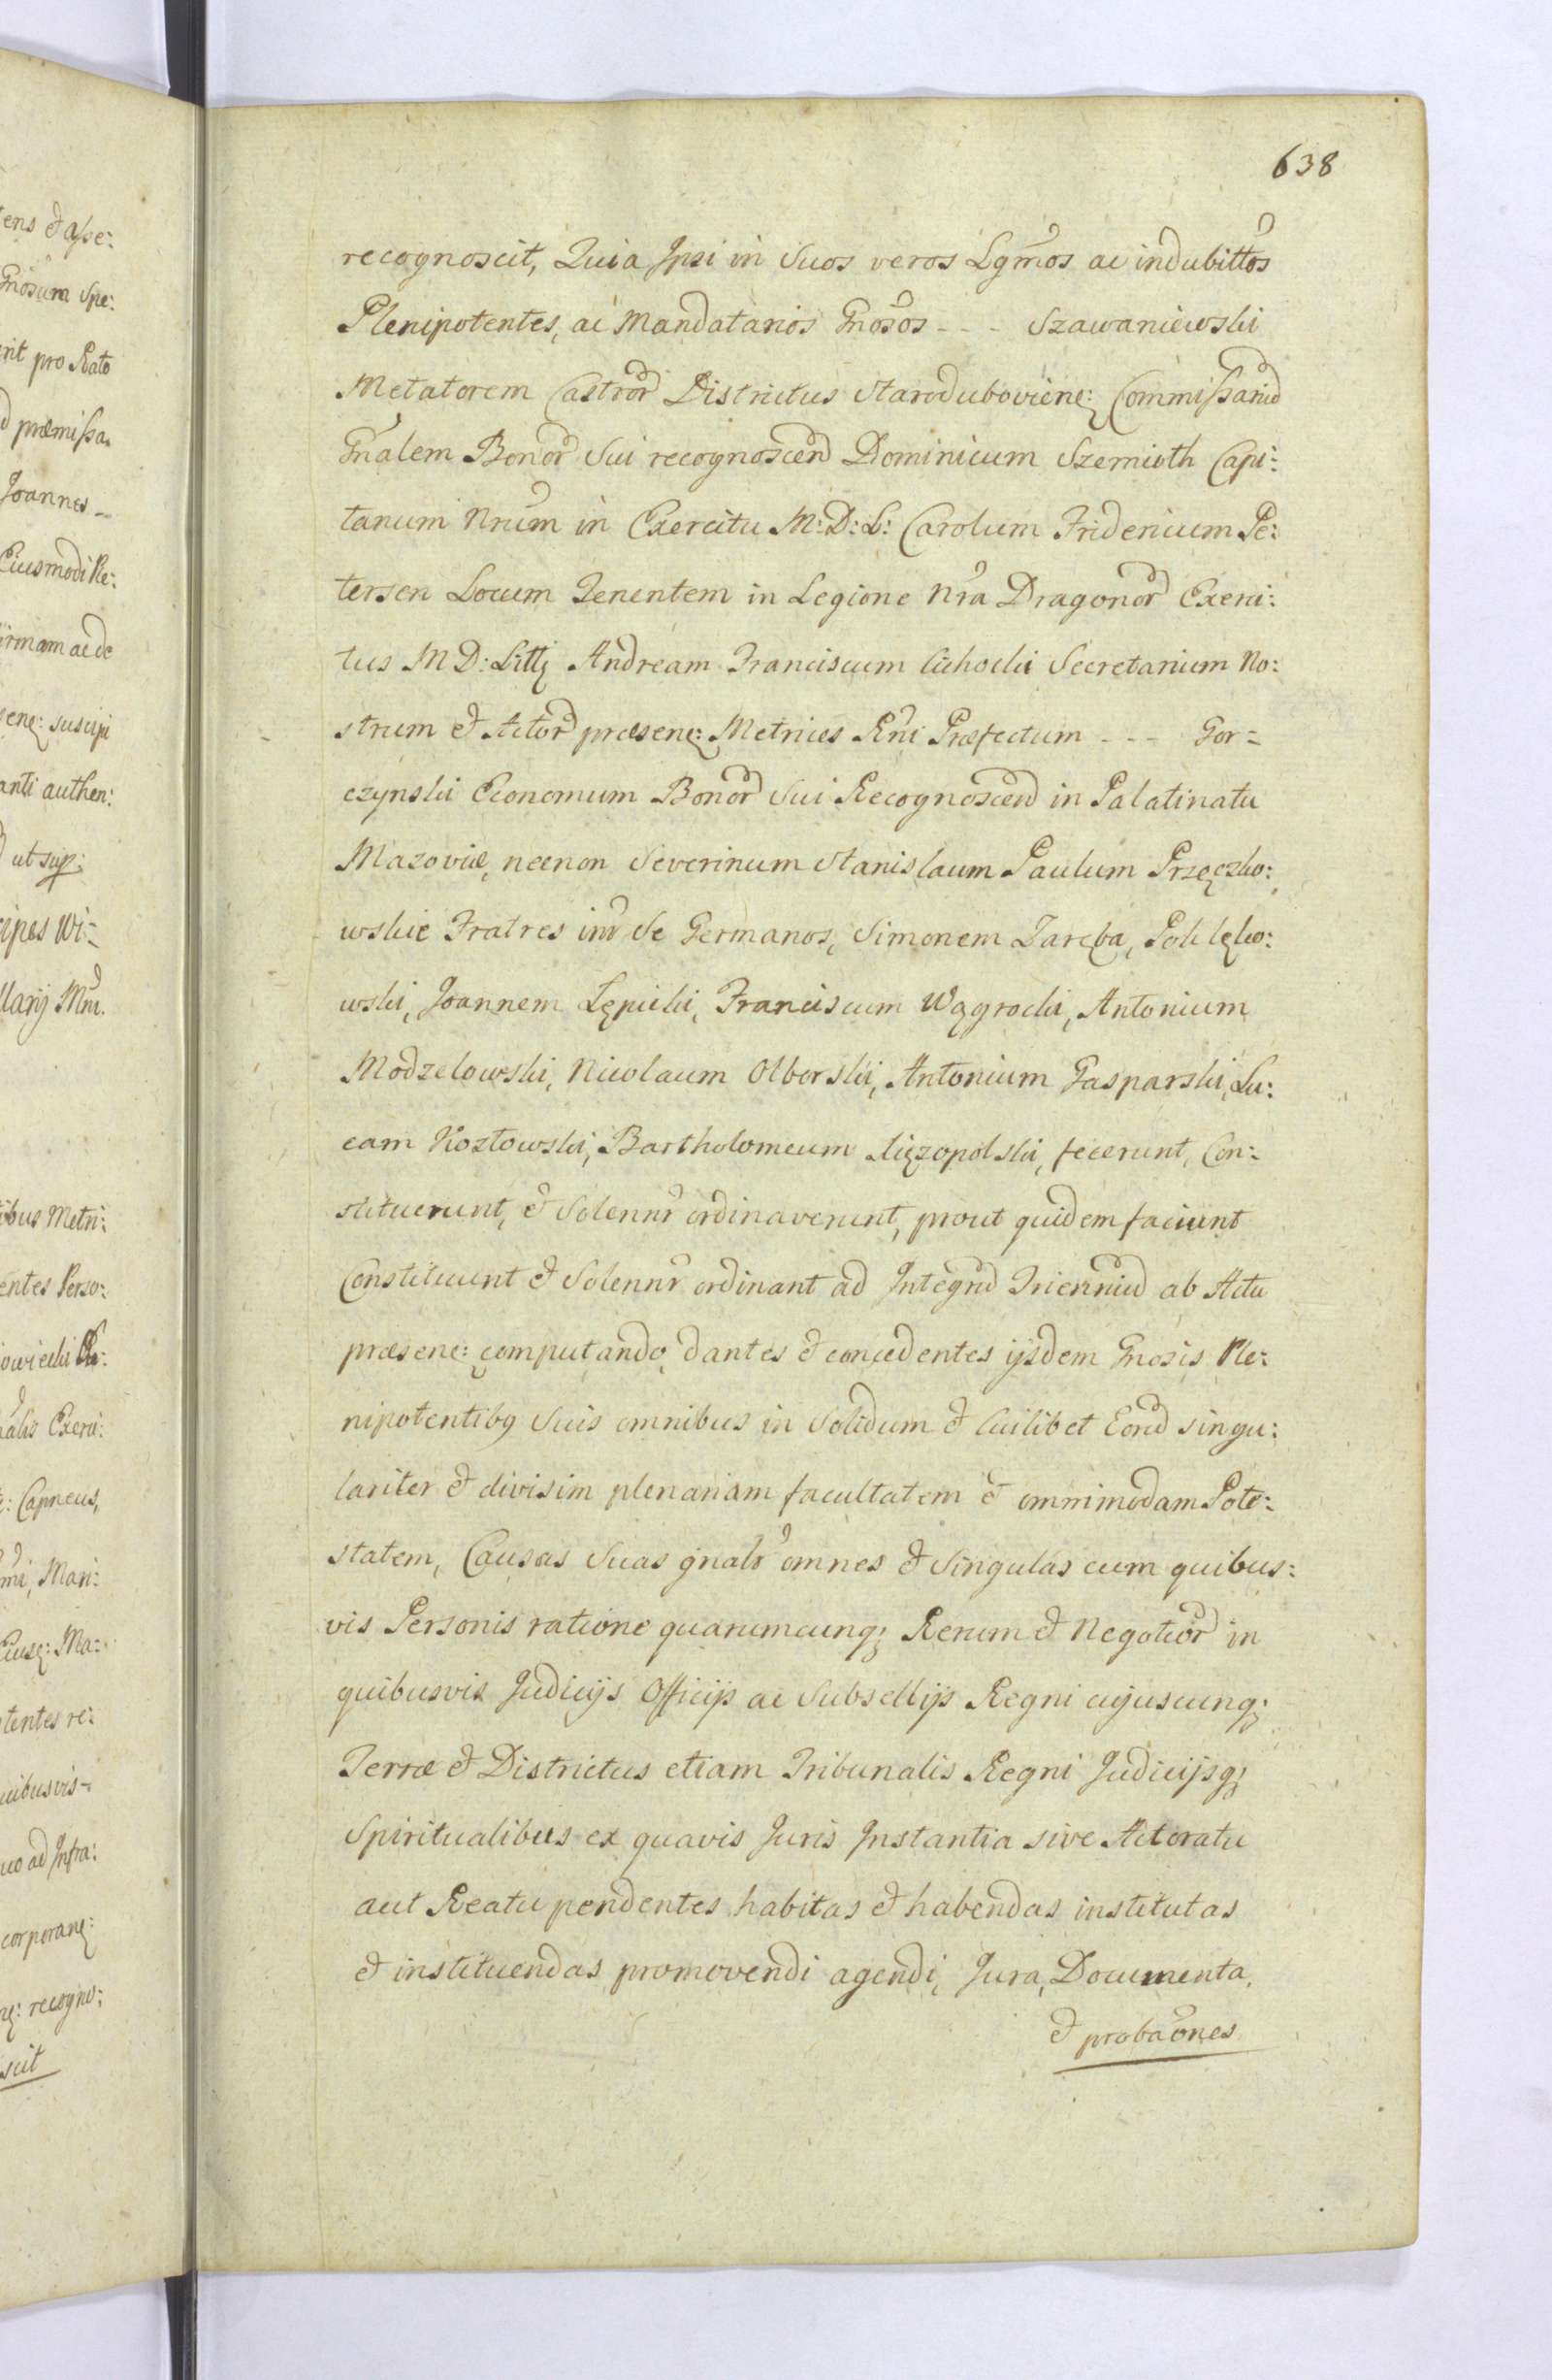 ens et asse:
Gnosum Spe:
erit pro Rato
præmissa
Joannes
Eiusmodi Re:
firmam ac de
sene: suscipi
anti authen:
ut sup:
cipes Wi=
llarij Mni.
ibus Metri:
entes Perso:
nalis Exerci:
Capneus,
mi, Mari:
Eiusq: Ma:
tentes re:
uibusvis=
uo ad Infra:
corporanę:
recogno:
scit
638
recognoscit, Quia Ipsi in Suos veros Lgmos ac indubittos
Plenipotentes, ac Mandatarios Gnosos - - - Szawaniewski
Metatorem Castror Districtus Staroduboviene: Commissariu
Gnalem Bonor Sui recognoscen Dominicum Szemioth Capi:
tanum Nrum in Exercitu M: D: L: Carolum Fridericum Pe:
tersen Locum Tenentem in Legione Nra Dragonor Exerci:
tus M D: Litt: Andream Franciscum Cichocki Secretarium No:
strum et Actor præsene: Metrices Rni Præfectum - - - Gor=
czynski Economum Bonor Sui Recognoscen in Palatinatu
Mazoviæ, necnon Severinum Stanislaum Paulum Przęczko:
wskie Fratres inr Se Germanos, Simonem Zaręba, Poklęko:
wski, Joannem Lępicki, Franciscum Wągrocki, Antonium
Modzelowski, Nicolaum Olborski, Antonium Gasparski, Lu:
cam Kozłowski, Bartholomeum Xięzopolski, fecerunt, Con:
stituerunt, et Solennr ordinaverunt, prout quidem faciunt
Constituunt et Solennr ordinant ad Integru Trienniu ab Actu
præsene: computando, dantes et concedentes ijsdem Gnosis Ple:
nipotentibq Suis omnibus in Solidum et Cuilibet Eoru singu:
lariter et divisim plenariam facultatem et omnimodam Pote:
statem, Causas Suas gnalr omnes et Singulas cum quibus:
vis Personis ratione quarumcunq; Rerum et Negotior in
quibusvis Judicijs Officijs ac Subsellijs Regni cujuscunq;
Terræ et Districtus etiam Tribunalis Regni Judicijsq;
Spiritualibus ex quavis Juris Instantia sive Actoratu
aut Reatu pendentes habitas et habendas institutas
et instituendas promovendi agendi, Jura, Documenta,
et probaones